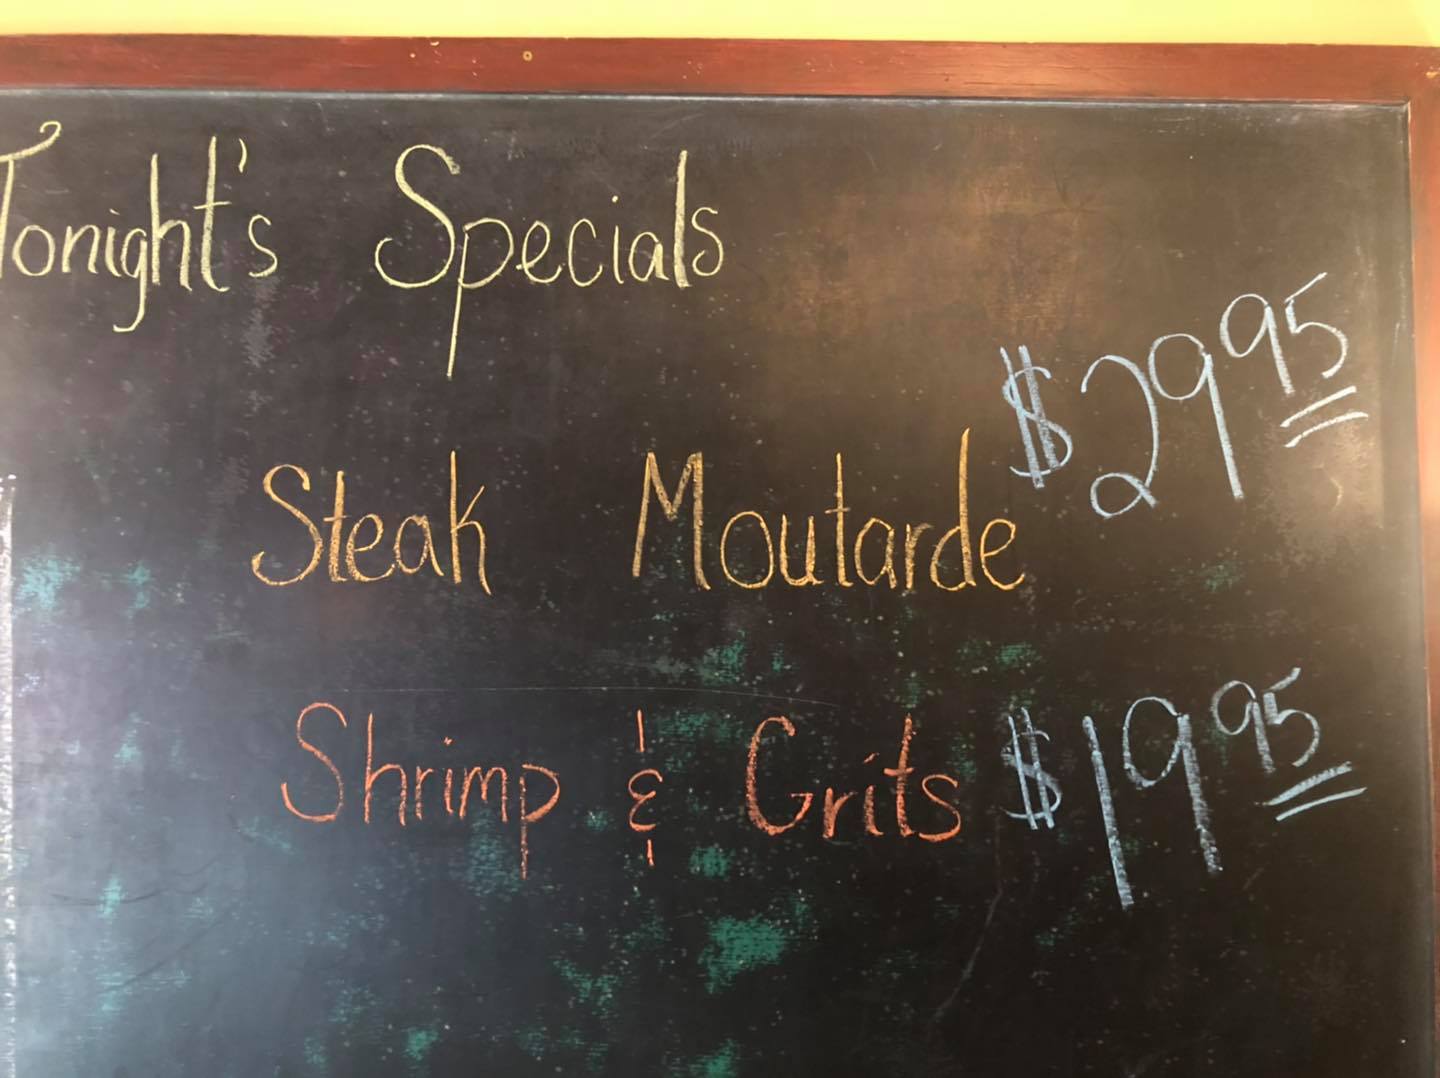 Tonight's Specials
Steak Moutarde $29.95
Shrimp & Grits $19.95